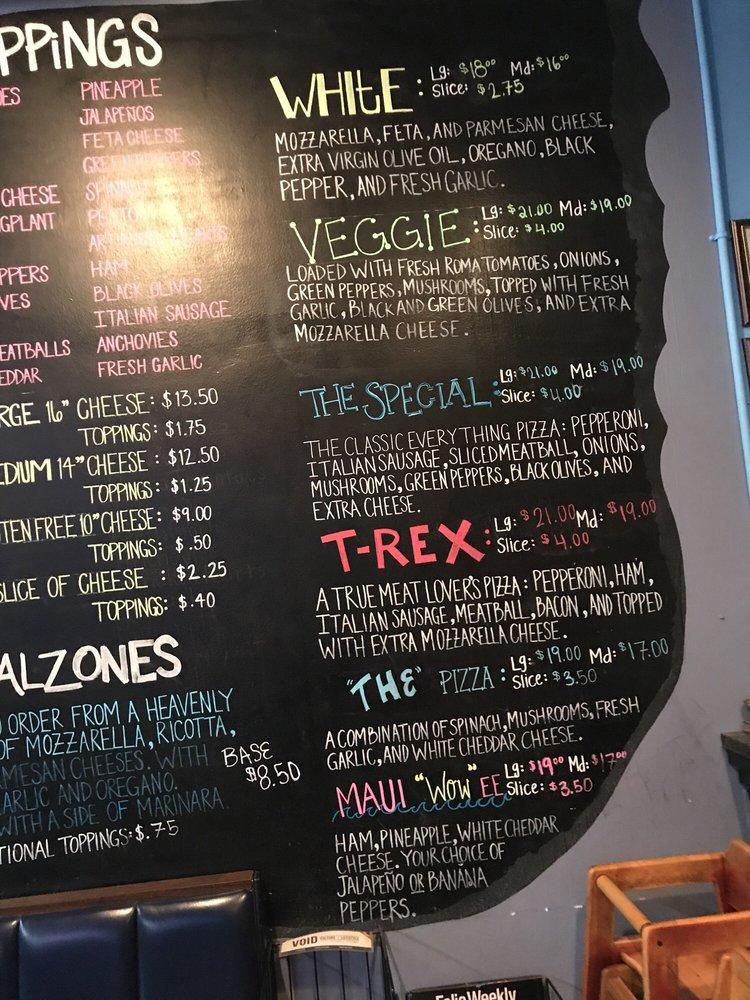 PPiNGS
ES
PINEAPPLE
JALAPEÑOS
FETA CHEESE
GREEN PEPPERS
CHEESE
SPINACH
GPLANT
PESTO
ARTICHOKE HEARTS
PPERS
HAM
VES
BLACK OLIVES
ITALIAN SAUSAGE
EATBALLS
ANCHOVIES
EDDAR
FRESH GARLIC
RGE 16" CHEESE: $13.50
TOPPINGS: $1.75
DIUM 14" CHEESE: $12.50
TOPPINGS: $1.25
TEN FREE 10" CHEESE: $9.00
TOPPINGS: $.50
SLICE OF CHEESE : $2.25
TOPPINGS: $.40
ALZONES
ORDER FROM A HEAVENLY
OF MOZZARELLA, RICOTTA,
MESAN CHEESES. WITH
ARLIC AND OREGANO.
WITH A SIDE OF MARINARA.
BASE
$8.50
TIONAL TOPPINGS: $.75
WHItE: Lg: $18.00 Md: $16.00
Slice: $2.75
MOZZARELLA, FETA, AND PARMESAN CHEESE,
EXTRA VIRGIN OLIVE OIL, OREGANO, BLACK
PEPPER, AND FRESH GARLIC.
VEGGIE: Lg: $21.00 Md: $19.00
Slice: $4.00
LOADED WITH FRESH ROMA TOMATOES, ONIONS,
GREEN PEPPERS, MUSHROOMS, TOPPED WITH FRESH
GARLIC, BLACK AND GREEN OLIVES, AND EXTRA
MOZZARELLA CHEESE.
THE SPECIAL: Lg: $21.00 Md: $19.00
Slice: $4.00
THE CLASSIC EVERYTHING PIZZA: PEPPERONI,
ITALIAN SAUSAGE, SLICED MEATBALL, ONIONS,
MUSHROOMS, GREEN PEPPERS, BLACK OLIVES, AND
EXTRA CHEESE.
T-REX: Lg: $21.00 Md: $19.00
Slice: $4.00
A TRUE MEAT LOVER'S PIZZA: PEPPERONI, HAM,
ITALIAN SAUSAGE, MEATBALL, BACON, AND TOPPED
WITH EXTRA MOZZARELLA CHEESE.
"THE" PIZZA: Lg: $19.00 Md: $17.00
Slice: $3.50
A COMBINATION OF SPINACH, MUSHROOMS, FRESH
GARLIC, AND WHITE CHEDDAR CHEESE.
MAUI "WOW" EE Lg: $19.00 Md: $17.00
Slice: $3.50
HAM, PINEAPPLE, WHITE CHEDDAR
CHEESE. YOUR CHOICE OF
JALAPEÑO OR BANANA
PEPPERS.
VOID
Folio Weekly